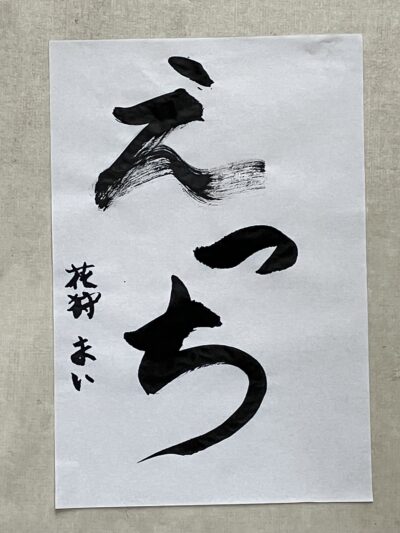 えっち
花狩まい